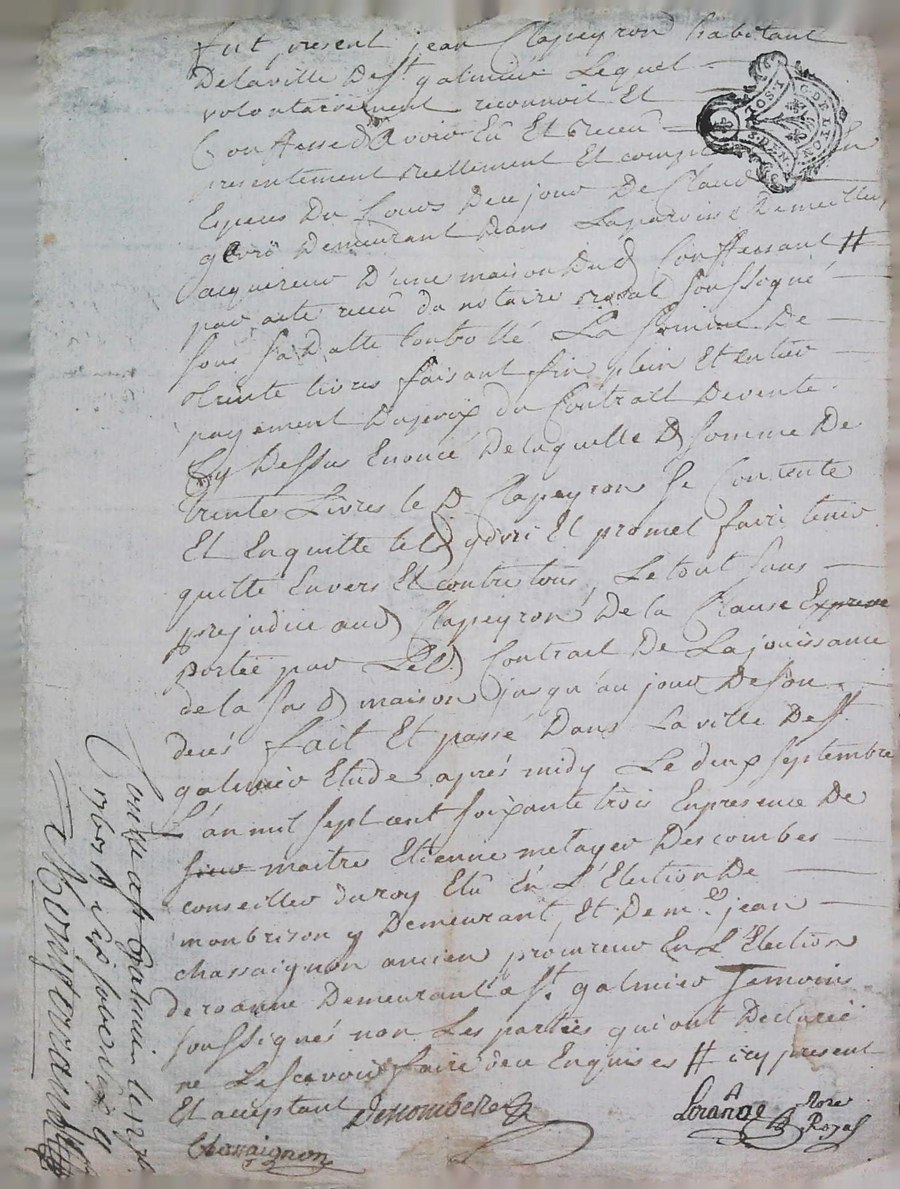 fut present jean Clapeyron habitant
Delaville De st galmier Lequel
volontairement reconnoit Et
Confesse D'avoir Eû Et receu
presentement reellement Et
Especes Du Cours Decejour De
Demeurant Dans Laparoisse
acquereur D'une maison Dud Confessant #
par acte receu du notaire royal soussigné
sous sa Datte Controllé La somme De
trente livres faisant fin plein Et entier
payement Du prix du Contratt Devente
Cy Dessus Enoncé Delaquelle D somme De
trente Livres le D Clapeyron Se Contente
Et Enquitte led Et promet faire tenir
quitte Envers Et contre tous, Le tout sans
prejudice aud Clapeyron De la Clause Expresse
portée par Led Contrait De La jouissance
de la sus d maison jusqu'au jour Deson
decés fait Et passé Dans La ville De st
galmier Etude aprés midy Le deux septembre
L'an mil sept cent soixante trois Enpresence De
sieur maitre Etienne metayer Descombes
conseiller du roy Elû En L'Election De
monbrison y Demeurant, Et De me jean
chassaignon ancien procureur En L'Election
de roanne Demeurant a st galmier Temoins
soussignés non Les parties qui ont Declaréé
ne Lescavoir faire dece Enquises # icy present
Et acceptant Descombes
Lorange Nore
Royal
Chassaignon
G. DE LYON